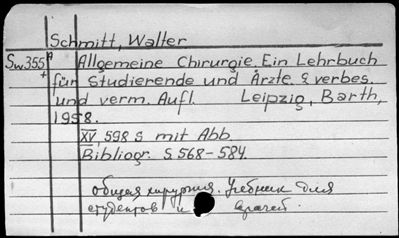 Schmitt, Walter
Sw355 A Allgemeine Chirurgie. Ein Lehrbuch
+ für Studierende und Ärzte. 2 verbes.
und verm. Aufl. Leipzig, Barth,
1958.
XV, 598 S mit Abb
Bibliogr. S. 568-584.
общая хирургия. Учебник для
студентов и врачей.